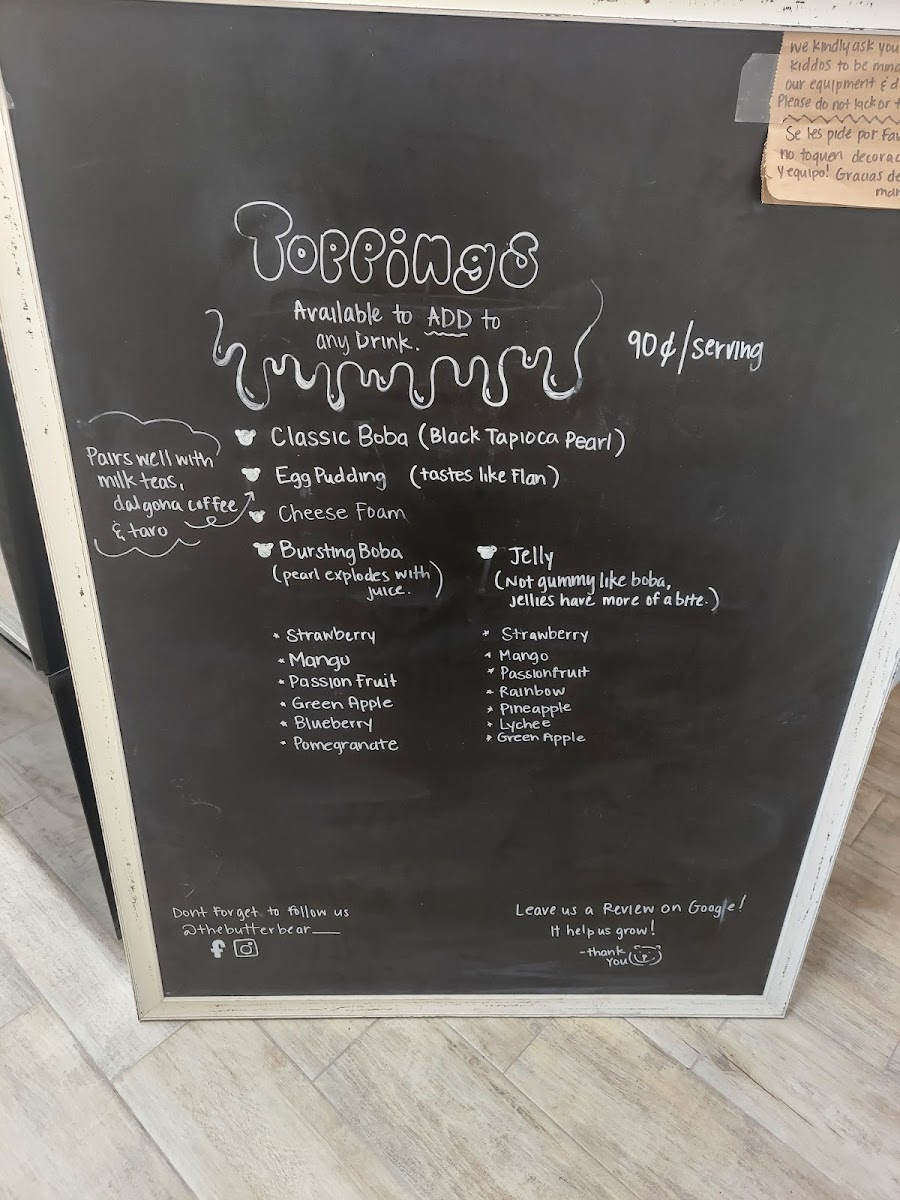 we kindly ask you
kiddos to be
our equipment &
Please do not kick or
Se les pide por
no toquen
y equipo! Gracias
Toppings
Available to ADD to
any Drink.
90¢/serving
Classic Boba (Black Tapioca Pearl)
Egg Pudding (tastes like Flan)
Cheese Foam
Pairs well with
milk teas,
dalgona coffee
& taro
Bursting Boba
(pearl explodes with
juice.)
* Strawberry
* Mango
* Passion Fruit
* Green Apple
* Blueberry
* Pomegranate
Jelly
(Not gummy like boba,
jellies have more of a bite.)
* Strawberry
* Mango
* Passionfruit
* Rainbow
* Pineapple
* Lychee
* Green Apple
Dont Forget to Follow us
@thebutterbear___
Leave us a Review on Google!
It help us grow!
-thank
you